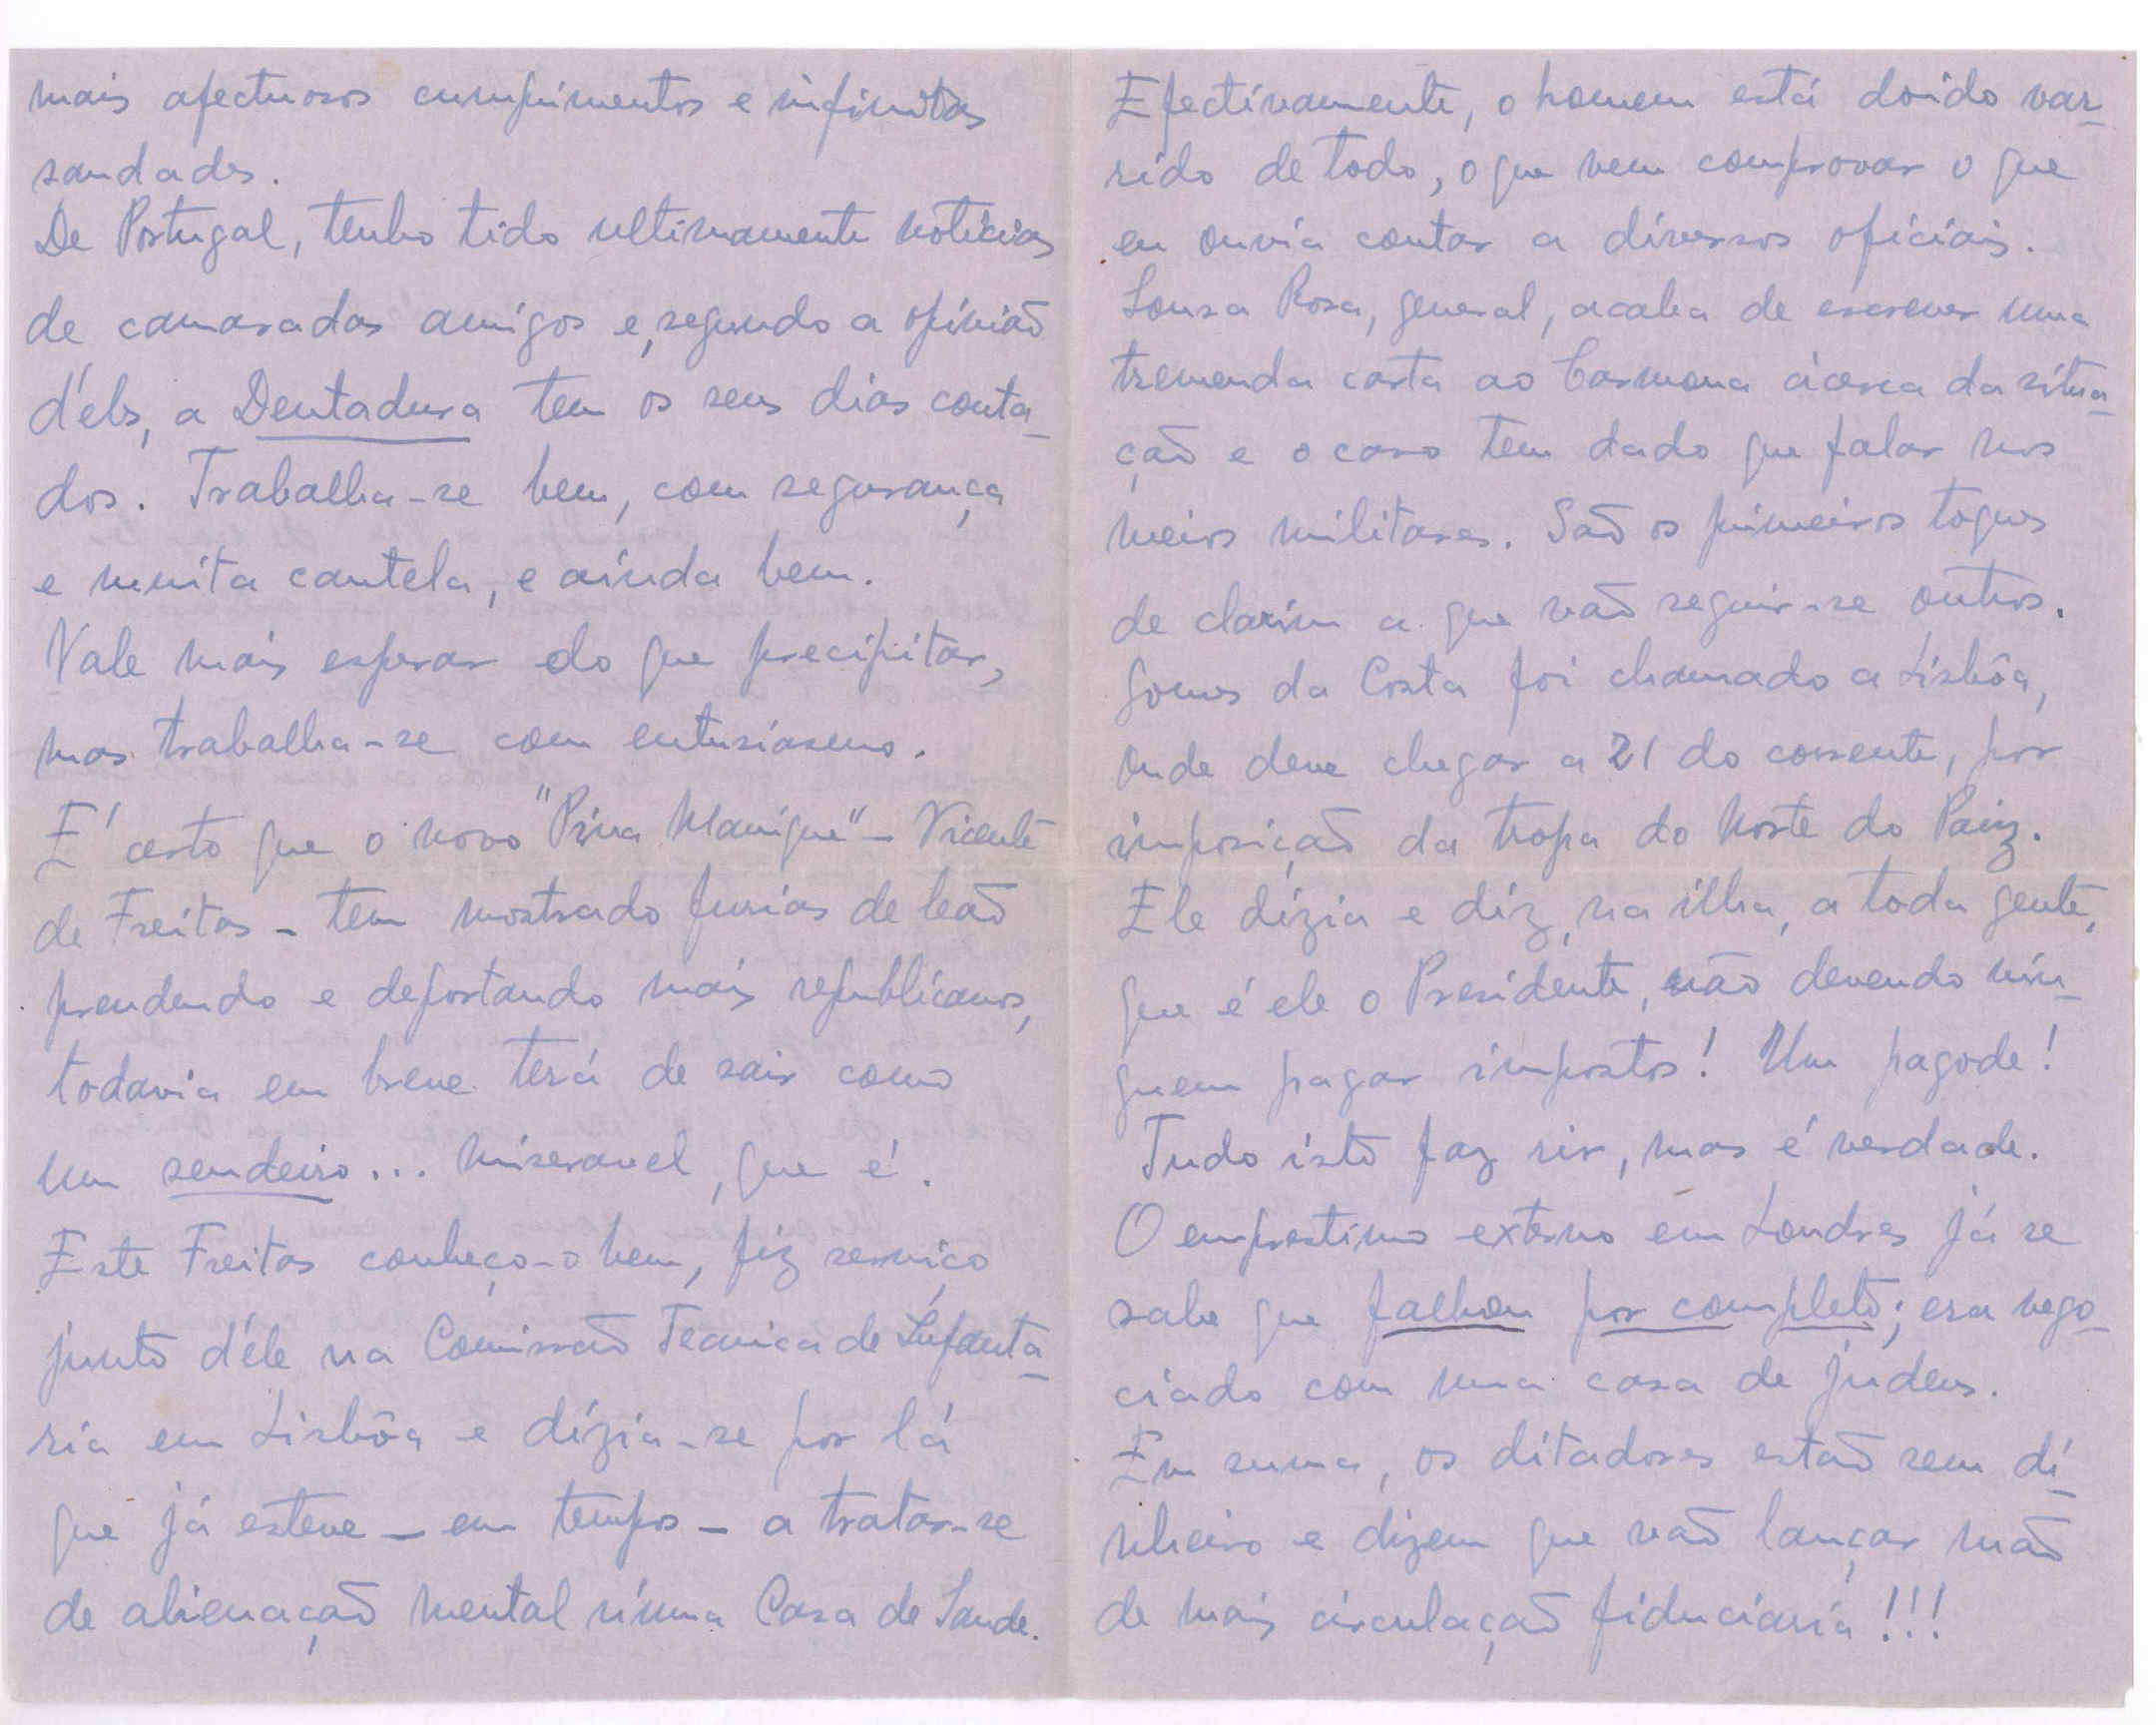 mais afectuosos cumprimentos e infinitas
saudades.
De Portugal, tenho tido ultimamente noticias
de camaradas amigos e, segundo a opinião
d'els, a Dentadura tem os seus dias conta-
dos. Trabalha-se bem, com segurança
e muita cautela, e ainda bem.
Vale mais esperar do que precipitar,
mas trabalha-se com entusiasmo.
E' certo que o novo "Pina Manique" - Vicente
de Freitas - tem mostrado furias de leão
prendendo e deportando mais republicanos,
todavia em breve terá de sair como
um sendeiro... miseravel, que é.
Este Freitas conheço-o bem, fiz serviço
junto d'éle na Comissão Tecnica de Infanta-
ria em Lisbôa e dizia-se por lá
que já esteve - em tempos - a tratar-se
de alienação mental n'uma Casa de Saude.
Efectivamente, o homem está doido var-
rido de todo, o que vem comprovar o que
eu ouvia contar a diversos oficiais.
Sousa Rosa, general, acaba de escrever uma
tremenda carta ao Carmona ácerca da situa-
ção e o caso tem dado que falar nos
meios militares. São os primeiros toques
de clarim a que vão seguir-se outros.
Gomes da Costa foi chamado a Lisbôa,
onde deve chegar a 21 do corrente, por
imposição da tropa do Norte do Paiz.
Ele dizia e diz, na ilha, a toda gente,
que é ele o Presidente, não devendo nin-
guem pagar impostos! Um pagode!
Tudo isto faz rir, mas é verdade.
O emprestimo externo em Londres já se
sabe que falhou por completo; era nego-
ciado com uma casa de judeus.
Em suma, os ditadores estão sem di-
nheiro e dizem que vão lançar mão
de mais circulação fiduciaria!!!